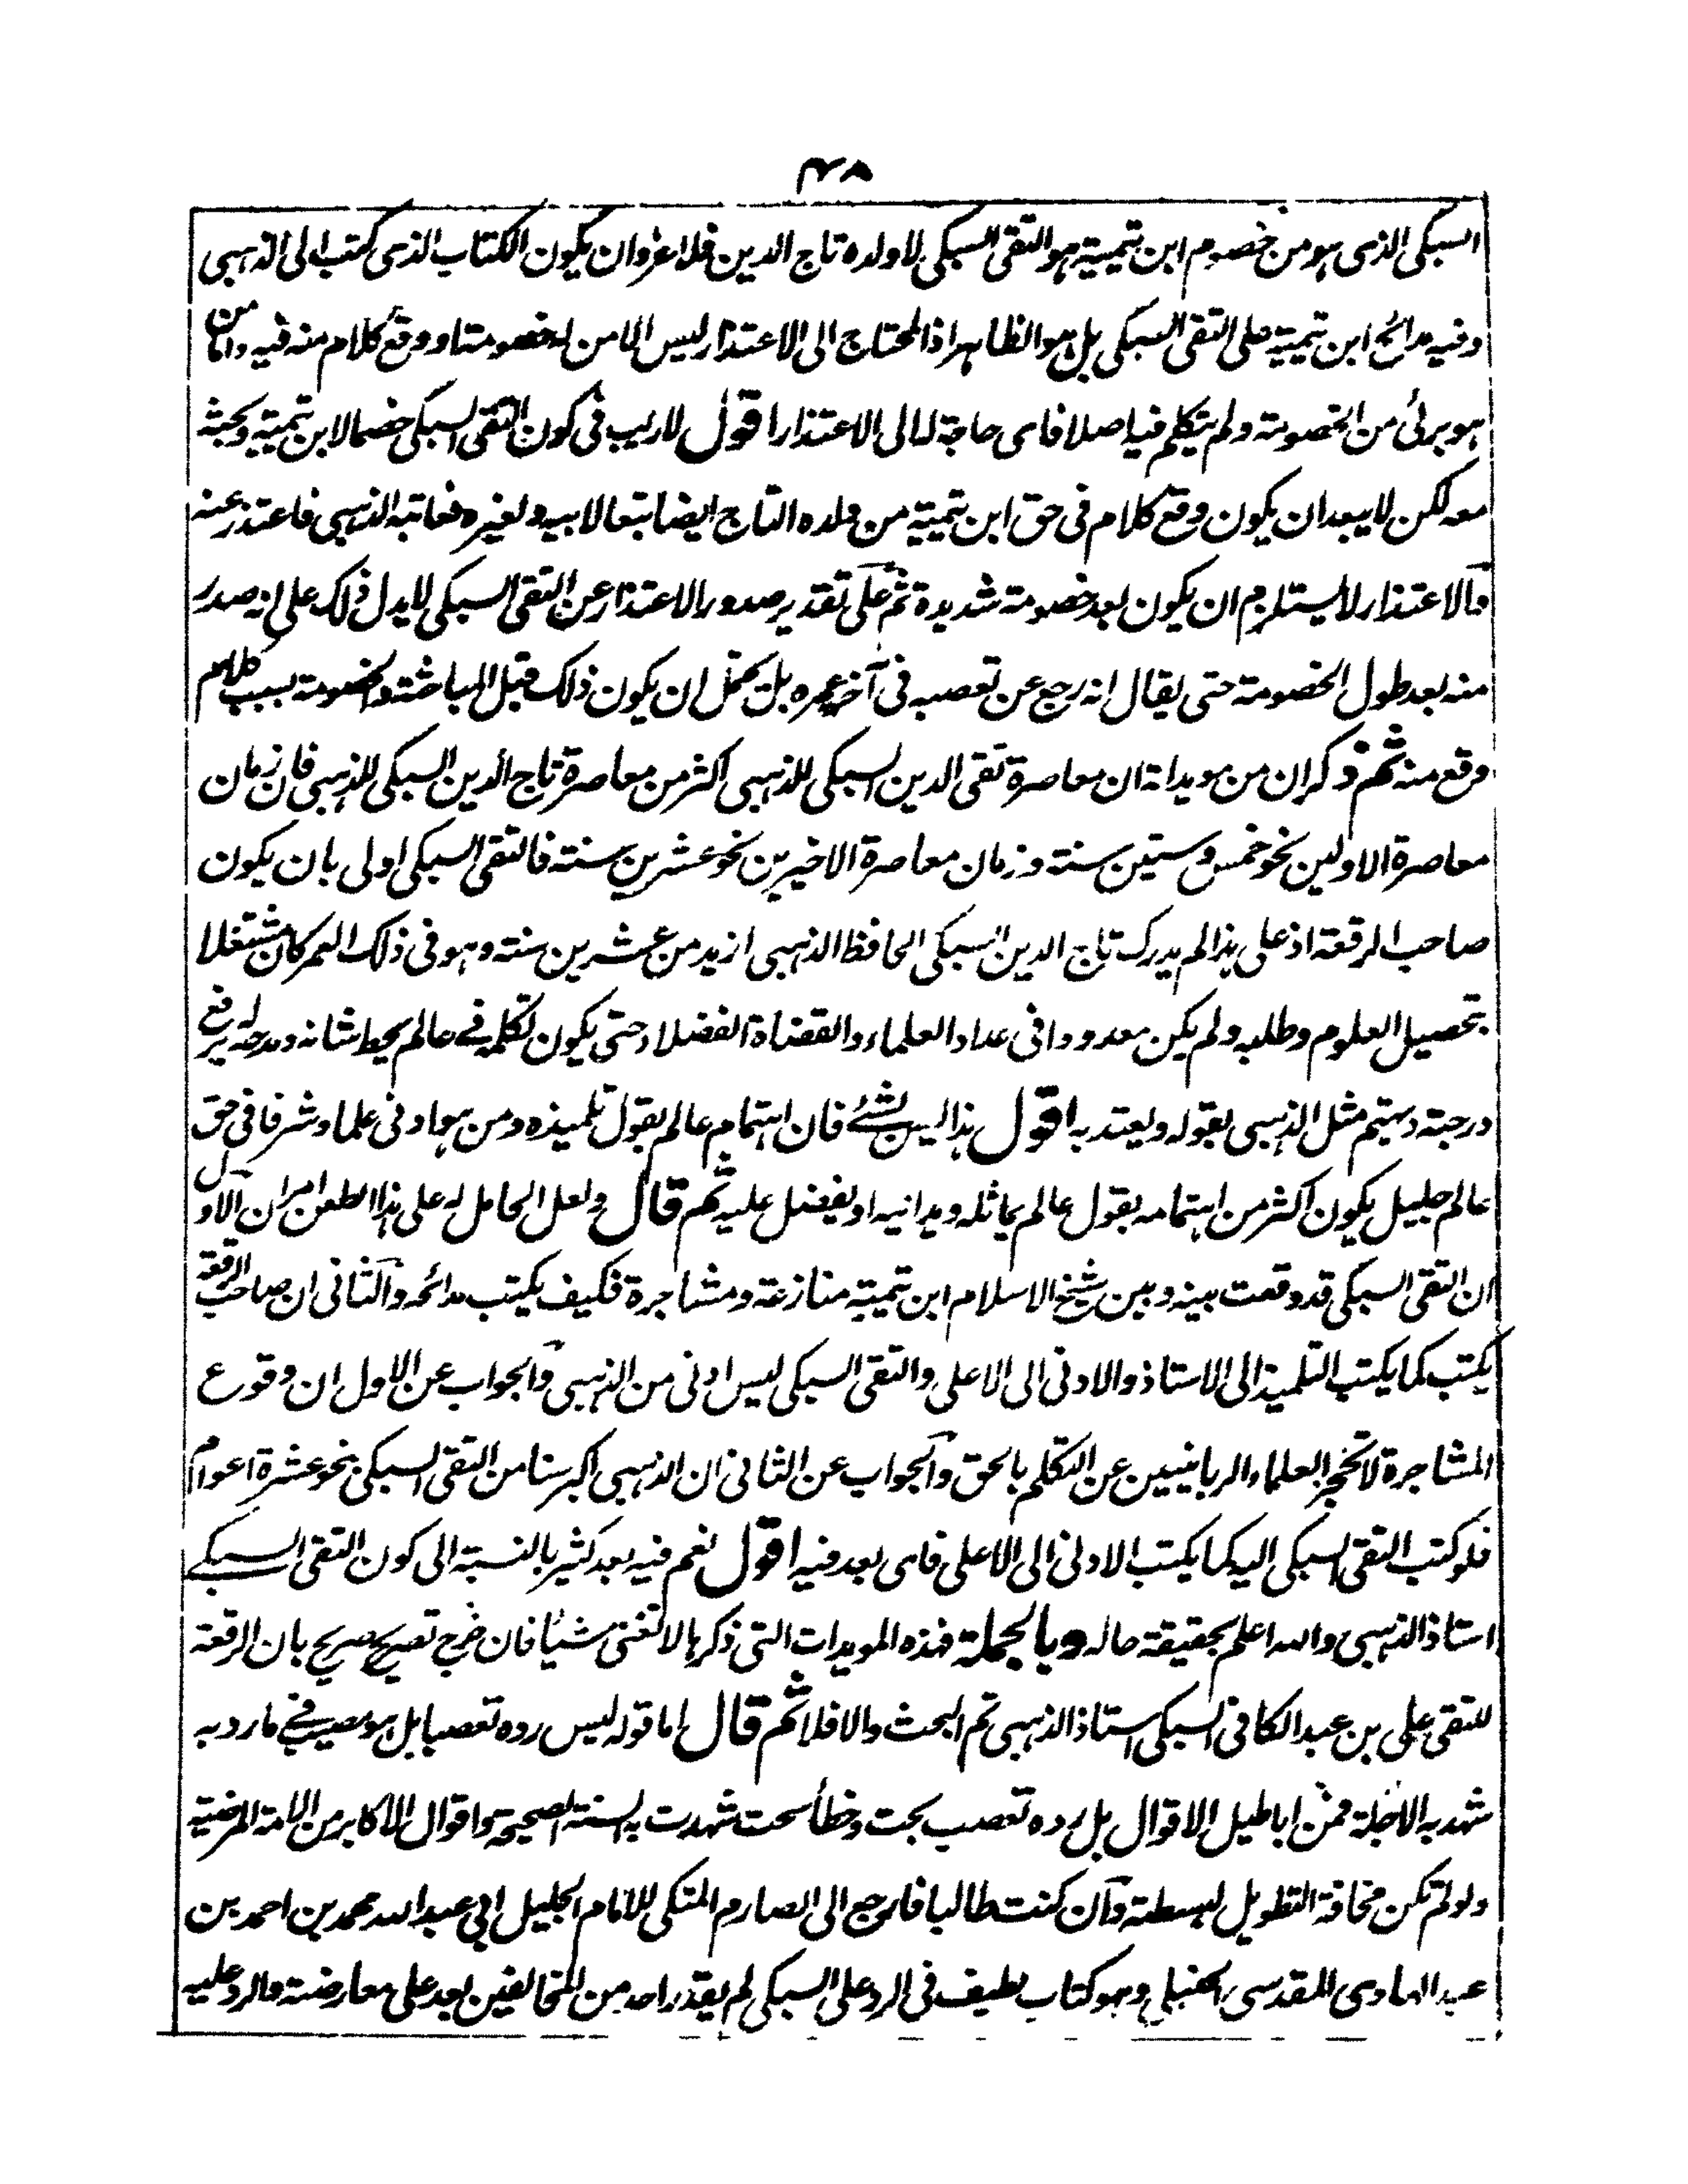 ٤٨
السبكى الذى هو من خصوم ابن تيمية هو التقى السبكى لا ولده تاج الدين فلا غرو ان يكون الكتاب الذى كتب الى الذهبى
وفيه مدائح ابن تيمية على التقى السبكى بل هو الظاهر اذ المحتاج الى الاعتذار ليس الا من له خصومة او وقع كلام منه فيه واما من
هو برئ من الخصومة ولم يتكلم فيه اصلا فاى حاجة له الى الاعتذار اقول لا ريب فى كون التقى السبكى خصما لابن تيمية وبحثه
معه لكن لا يبعد ان يكون وقع كلام فى حق ابن تيمية من ولده التاج ايضا تبعا لابيه ولغيره فعاتبه الذهبى فاعتذر عنه
فالاعتذار لا يستلزم ان يكون بعد خصومة شديدة ثم على تقدير صدور الاعتذار عن التقى السبكى لا يدل ذلك على انه صدر
منه بعد طول الخصومة حتى يقال انه رجع عن تعصبه فى آخر عمره بل يحتمل ان يكون ذلك قبل المباحثة والخصومة بسبب كلام
وقع منه ثم ذكر ان من مويداته ان معاصرة تقى الدين السبكى للذهبى اكثر من معاصرة تاج الدين السبكى للذهبى فان زمان
معاصرة الاولين نحو خمس وستين سنة وزمان معاصرة الاخيرين نحو عشرين سنة فالتقى السبكى اولى بان يكون
صاحب الرقعة اذ على هذا لم يدرك تاج الدين السبكى الحافظ الذهبى ازيد من عشرين سنة وهو فى ذلك العمر كان مشتغلا
بتحصيل العلوم وطلبه ولم يكن معدودا فى عداد العلماء والقضاة الفضلاء حتى يكون تكلمه فى عالم يحط شانه ومدحه له يرفع
درجته ويهتم مثل الذهبى بقوله ويعتد به اقول هذا ليس بشئ فان اهتمام عالم بقول تلميذه ومن هو ادنى علما وشرفا فى حق
عالم جليل يكون اكثر من اهتمامه بقول عالم يماثله ويدانيه او يفضل عليه ثم قال ولعل الحامل له على هذا الطعن امران الاول
ان التقى السبكى قد وقعت بينه وبين شيخ الاسلام ابن تيمية منازعة ومشاجرة فكيف يكتب مدائحه والثانى ان صاحب الرقعة
يكتب كما يكتب التلميذ الى الاستاذ والادنى الى الاعلى والتقى السبكى ليس ادنى من الذهبى والجواب عن الاول ان وقوع
المشاجرة لا تحجر العلماء الربانيين عن التكلم بالحق والجواب عن الثانى ان الذهبى اكبر سنا من التقى السبكى بنحو عشرة اعوام
فلو كتب التقى السبكى اليه كما يكتب الادنى الى الاعلى فاى بعد فيه اقول نعم فيه بعد كثير بالنسبة الى كون التقى السبكى
استاذ الذهبى والله اعلم بحقيقة حاله وبالجملة فهذه المويدات التى ذكرها لا تغنى شيئا فان خرج تصريح صريح بان الرقعة
للتقى على بن عبد الكافى السبكى استاذ الذهبى تم البحث والا فلا ثم قال اما قوله ليس رده تعصبا بل هو مصيب فى ما رد به
شهد به الاجلة فمن اباطيل الاقوال بل رده تعصب بحت وخطأ سحت شهدت به السنة الصحيحة واقوال الاكابر من الامة المرضية
ولو لم تكن مخافة التطويل لبسطته وان كنت طالبا فارجع الى الصارم المنكى للامام الجليل ابى عبد الله محمد بن احمد بن
عبد الهادى المقدسى الحنبلى وهو كتاب لطيف فى الرد على السبكى لم يقدر احد من المخالفين بعد على معارضته والرد عليه